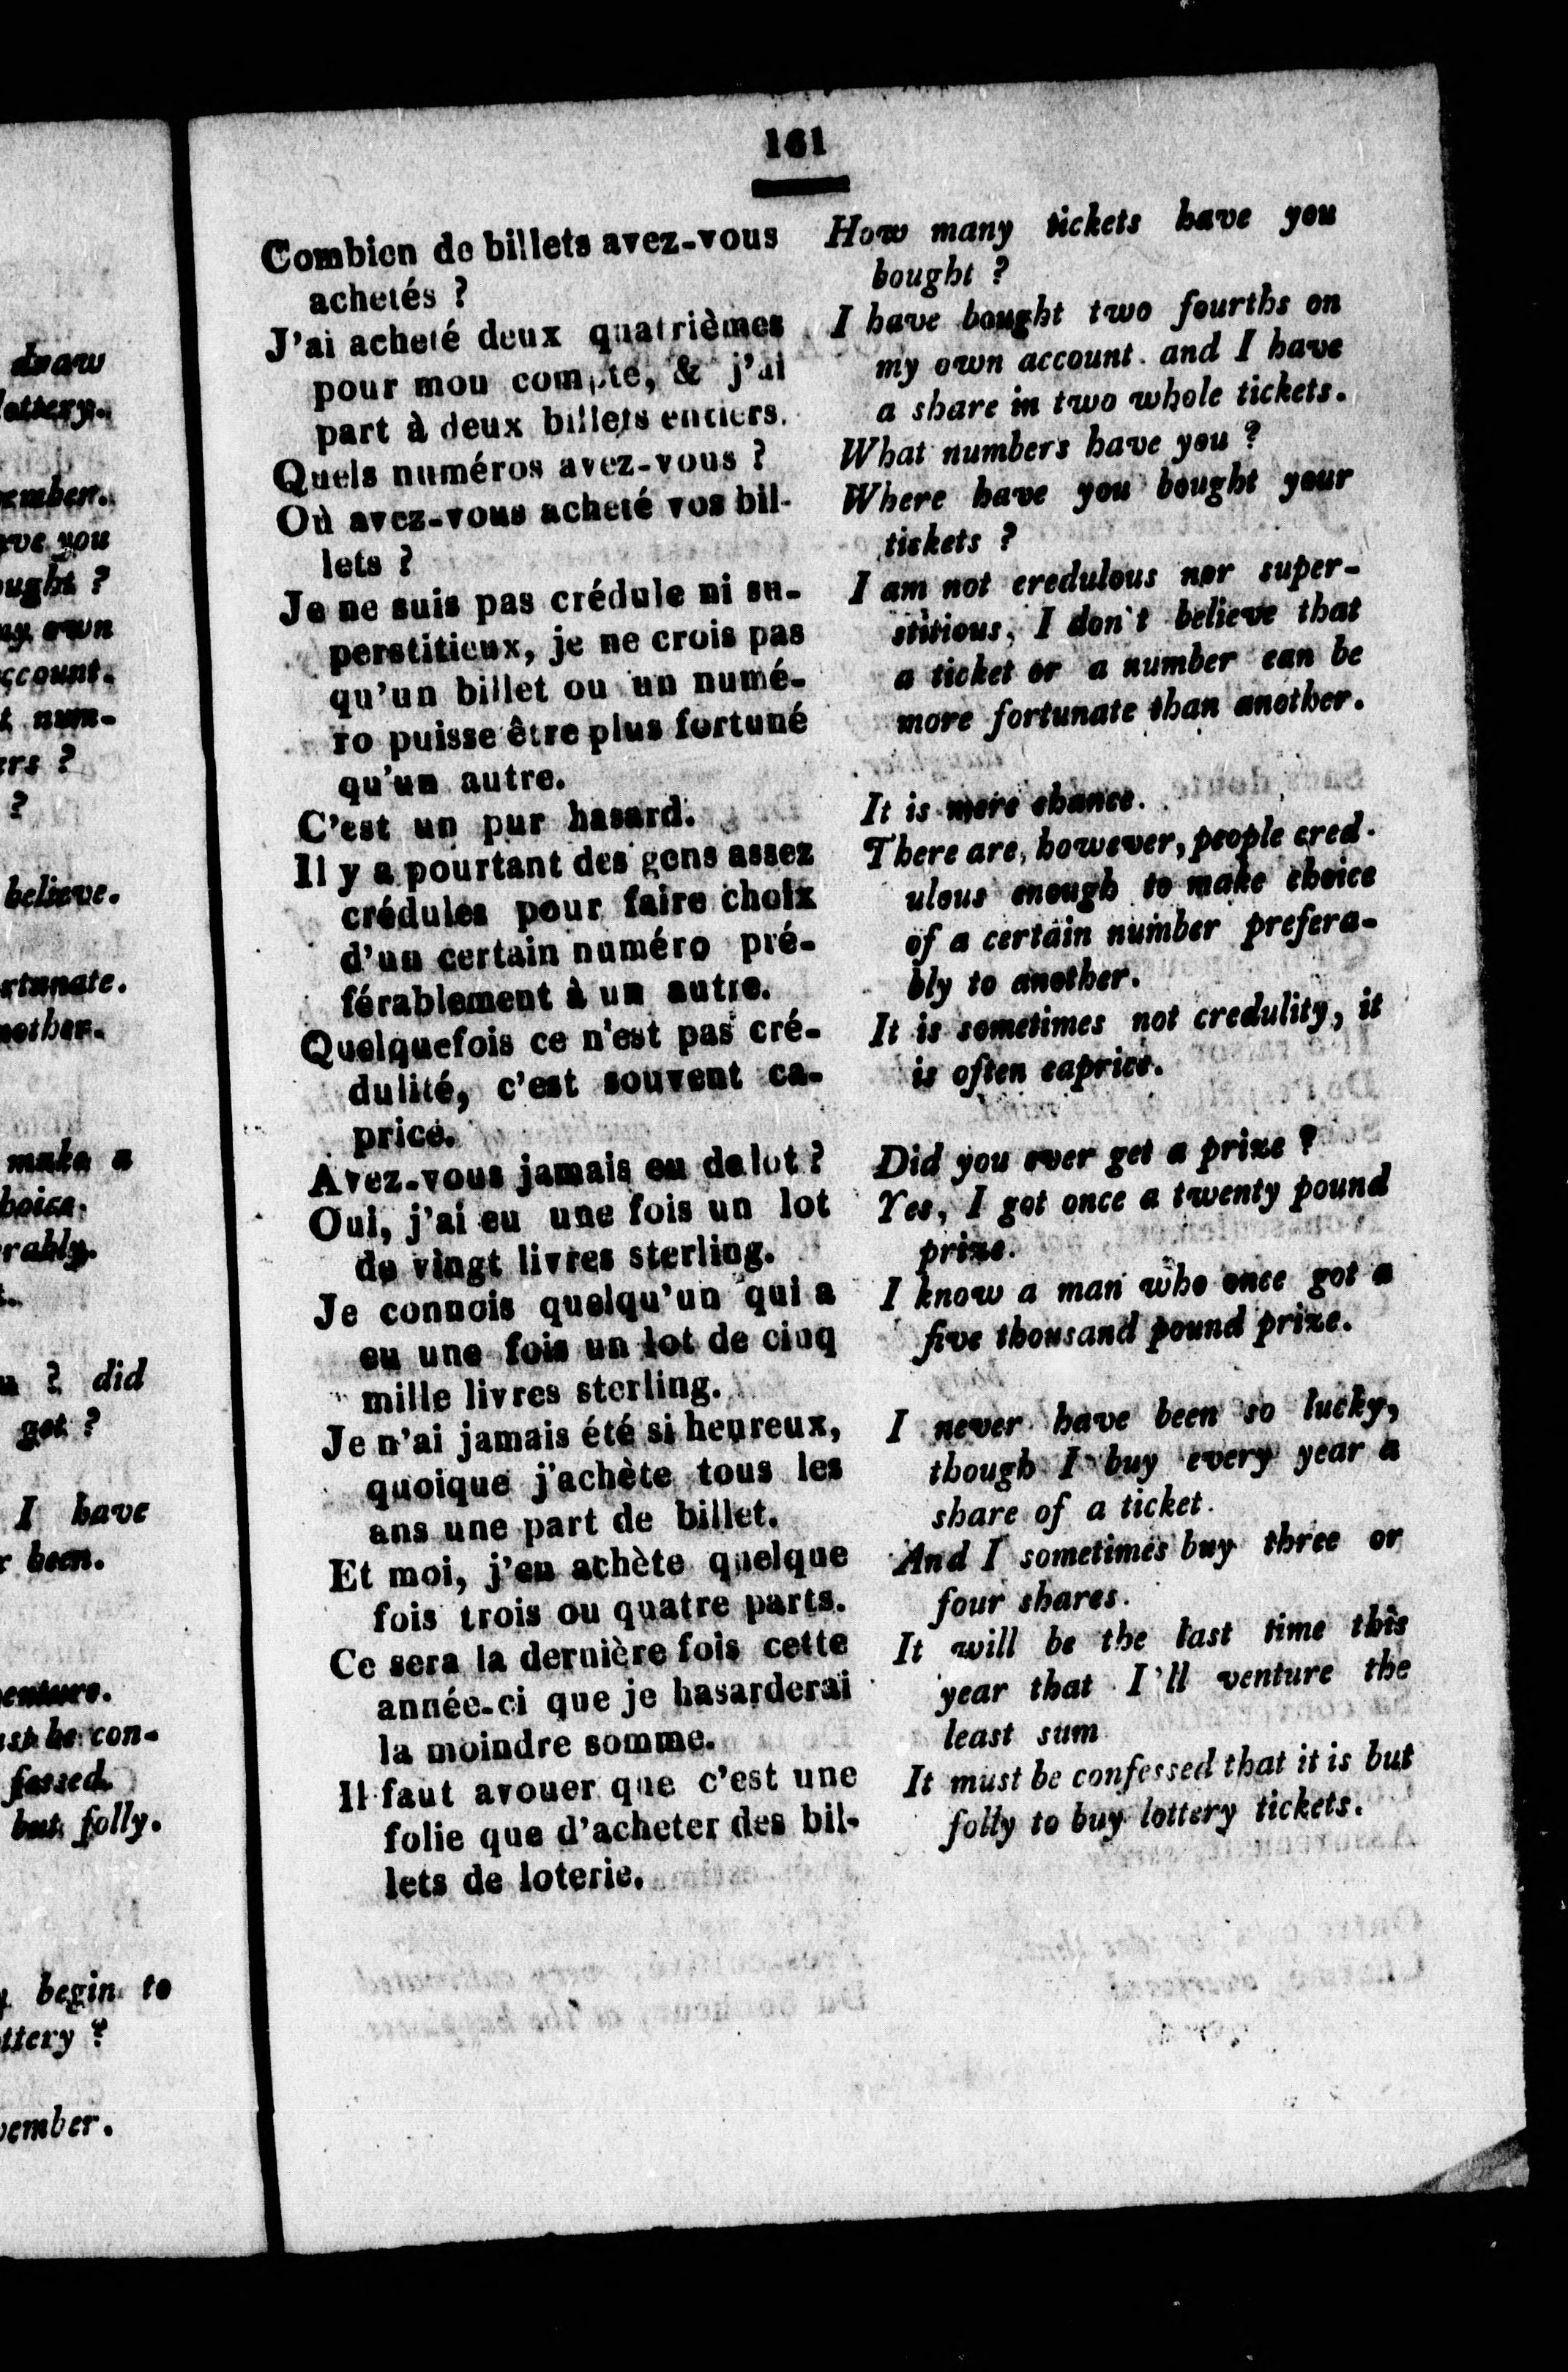 draw
lottery.
vember.
ave you
ought ?
my own
account.
t num-
ers ?
?
believe.
ortunate.
nother.
make a
choice.
rably.
t.
u ? did
get ?
I have
r been.
venture.
ust be con-
fessed.
but folly.
begin to
ttery ?
vember.
161
Combien de billets avez-vous
achetés ?
J'ai acheté deux quatrièmes
pour mon compte, & j'ai
part à deux billets entiers.
Quels numéros avez-vous ?
Où avez-vous acheté vos bil-
lets ?
Je ne suis pas crédule ni su-
perstitieux, je ne crois pas
qu'un billet ou un numé-
ro puisse être plus fortuné
qu'un autre.
C'est un pur hasard.
Il y a pourtant des gens assez
crédules pour faire choix
d'un certain numéro pré-
férablement à un autre.
Quelquefois ce n'est pas cré-
dulité, c'est souvent ca-
price.
Avez-vous jamais eu de lot ?
Oui, j'ai eu une fois un lot
de vingt livres sterling.
Je connois quelqu'un qui a
eu une fois un lot de cinq
mille livres sterling.
Je n'ai jamais été si heureux,
quoique j'achète tous les
ans une part de billet.
Et moi, j'en achète quelque
fois trois ou quatre parts.
Ce sera la dernière fois cette
année-ci que je hasarderai
la moindre somme.
Il faut avouer que c'est une
folie que d'acheter des bil-
lets de loterie.
How many tickets have you
bought ?
I have bought two fourths on
my own account. and I have
a share in two whole tickets.
What numbers have you ?
Where have you bought your
tickets ?
I am not credulous nor super-
stitious, I don't believe that
a ticket or a number can be
more fortunate than another.
It is mere chance.
There are, however, people cred-
ulous enough to make choice
of a certain number prefera-
bly to another.
It is sometimes not credulity, it
is often caprice.
Did you ever get a prize ?
Yes, I got once a twenty pound
prize.
I know a man who once got a
five thousand pound prize.
I never have been so lucky,
though I buy every year a
share of a ticket.
And I sometimes buy three or
four shares.
It will be the last time this
year that I'll venture the
least sum
It must be confessed that it is but
folly to buy lottery tickets.